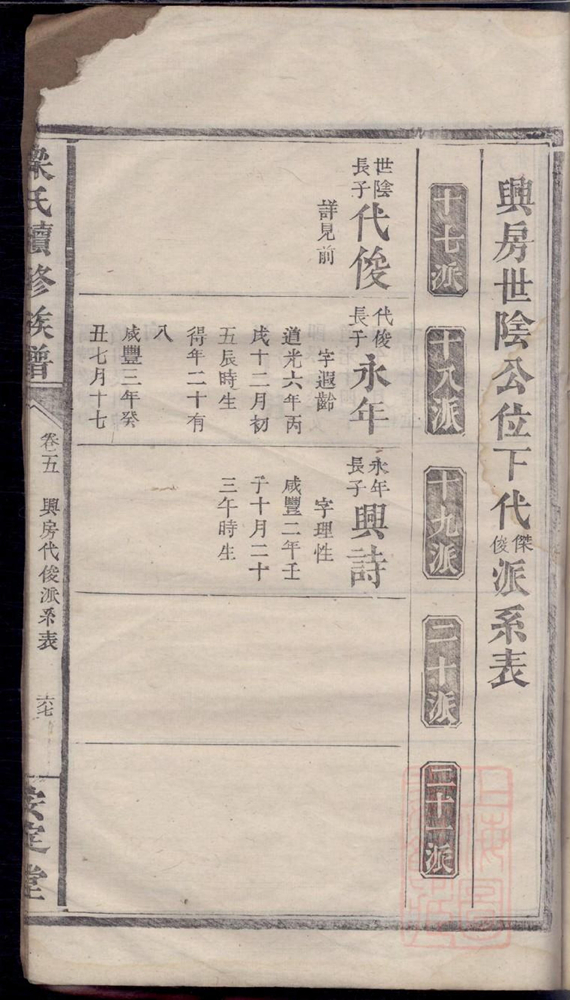 興房世陰公位下代傑俊派系表
十七派
十八派
十九派
二十派
二十一派
世陰長子
代俊
詳見前
代俊長子
永年
字遐齡
道光六年丙
戌十二月初
五辰時生
得年二十有
八
咸豐三年癸
丑七月十七
永年長子
興詩
字理性
咸豐二年壬
子十月二十
三午時生
梁氏續修族譜
卷五
興房代俊派系表
六七
安定堂